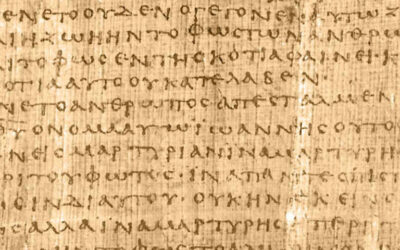 ΕΝΕΤΟΟΥΔΕΝΟΓΕΓΟΝΕΝ ΥΤΩΖ
ΖΩΗΗΝΤΟΦΩϹΤΩΝΑΝΘΡΩ
ΙΤΟΦΩϹΕΝΤΗϹΚΟΤΙΑΦΑΙΝΕΙΚ
ΚΟΤΙΑΑΥΤΟΟΥΚΑΤΕΛΑΒΕΝ
ΝΕΤΟΑΝΘΡΩΠΟϹΑΠΕϹΤΑΛΜΕΝ
ΘΥΟΝΟΜΑΑΥΤΩΪΩΑΝΝΗϹΟΥΤΟ
ΝΕΙϹΜΑΡΤΥΡΙΑΝΙΝΑΜΑΡΤΥΡΗ
ΡΙΤΟΥΦΩΤΟϹ·ΙΝΑΠΑΝΤΕϹΠΙϹ
ΙΝΔΙΑΥΤΟΥ·ΟΥΚΗΝΕΚΕΙΝΟϹ
ΑΛΛΑΙΝΑΜΑΡΤΥΡΗϹΗΠΕΡΙ